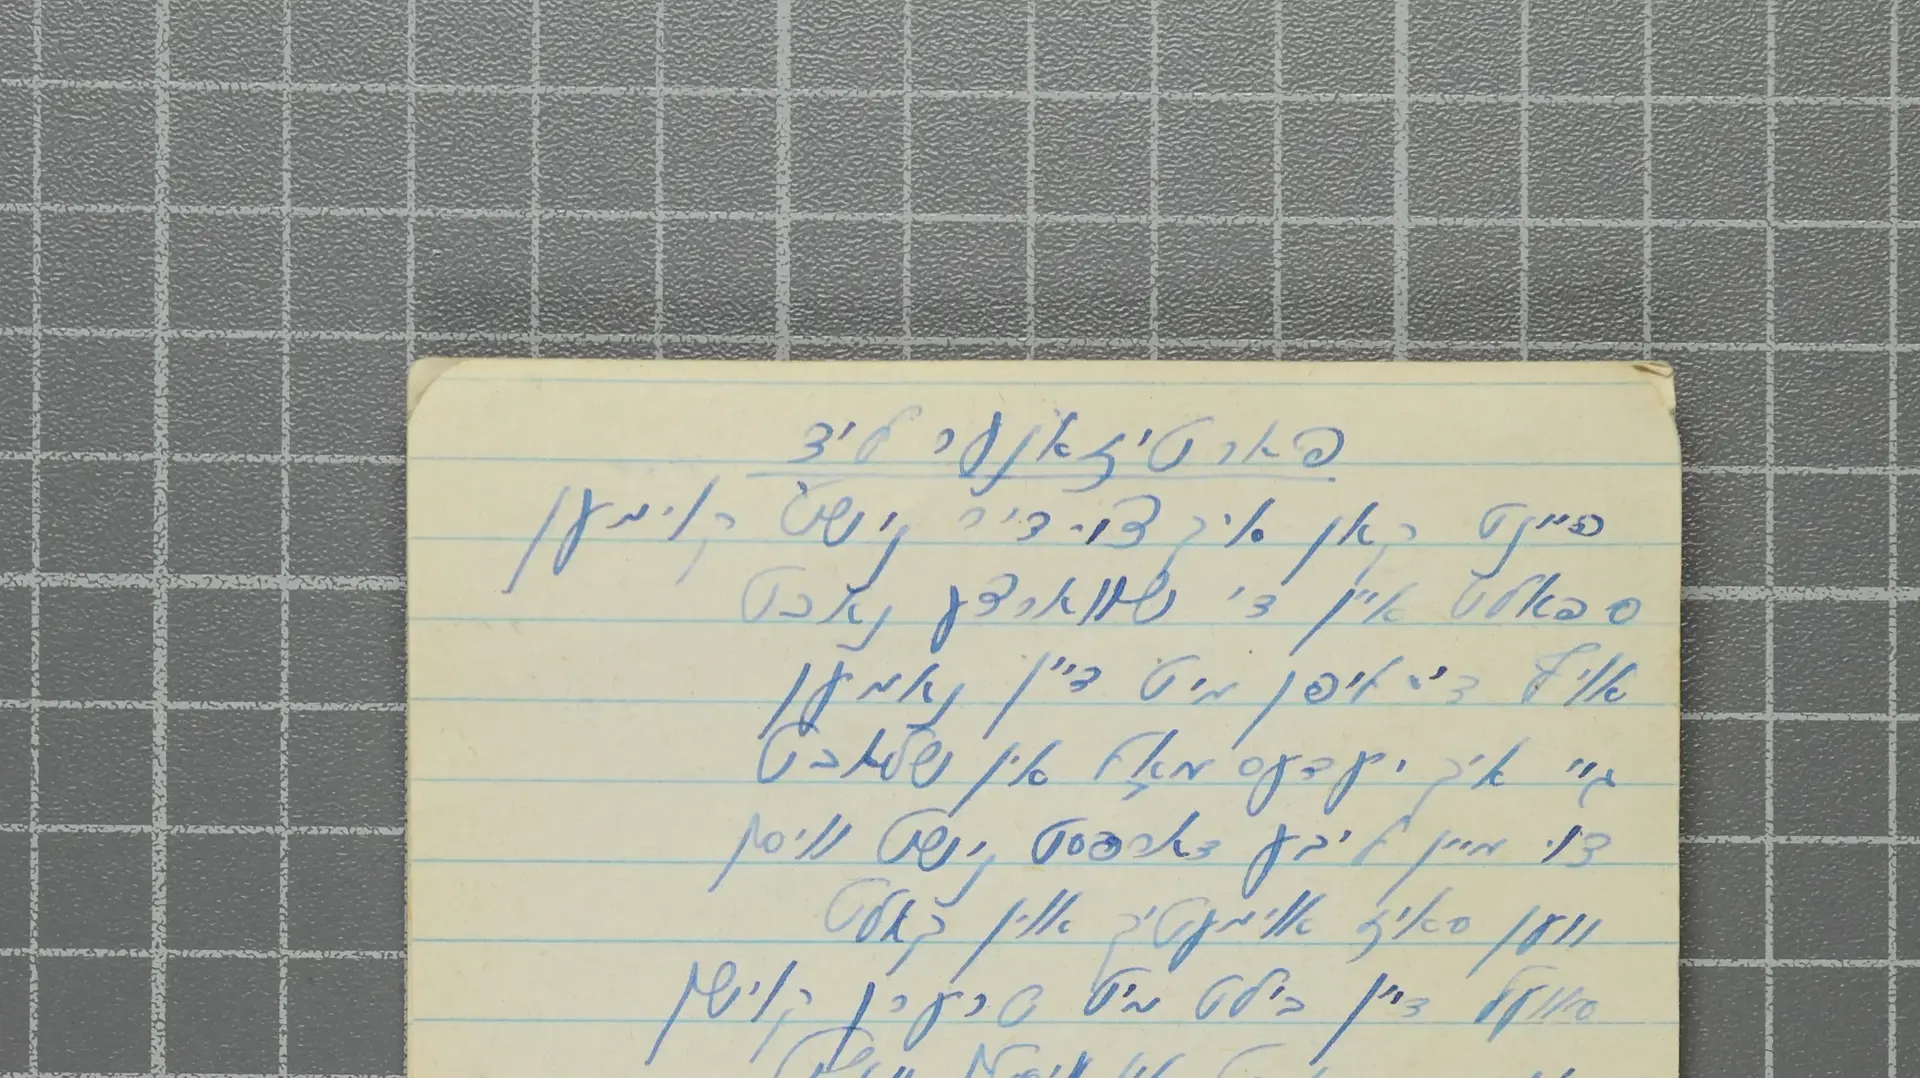 פארטיזאנער ליד
היינט קאן איך צו דיר נישט קוימען
ס'האלט אין די שווארצע נאכט
אויף די ליפן מיט דיין נאמען
גיי איך יעדעס מאל אין שלאכט
דו מיין ליבע דארפסט נישט וויסן
ווען סאיז אומעטיק און קאלט
סוועל דיין בילט מיט טרערן קוישן